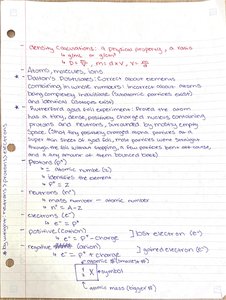 Density Calculations: a physical property, a ratio
↳ g/mL or g/cm³
↳ D = m/v, m = d×V, V = m/D
Atoms, molecules, ions
Dalton's Postulates: Correct about elements
combining in whole numbers; incorrect about atoms
being completely indivisible (subatomic particles exist)
and identical (isotopes exist)
* Rutherford gold foil experiment: Proved the atom
has a tiny, dense, positively charged nucleus containing
protons and neutrons, surrounded by mostly empty
space. (Shot tiny positively charged alpha particles at a
super thin sheet of gold foil, most particles went straight
through the foil without stopping, a few particles bent off course,
and a tiny amount of them bounced back)
Protons (p⁺)
↳ atomic #
↳ identifies the element
↳ p⁺ = Z
neutrons (n°)
↳ mass number - atomic number
↳ n° = A-Z
electrons (e⁻)
↳ e⁻ = p⁺
positive (cation) } lost electron (e⁻)
↳ e⁻ = p⁺ - charge
negative (anion) } gained electron (e⁻)
↳ e⁻ = p⁺ + charge
atomic # (smaller #)
X symbol
atomic mass (bigger #)